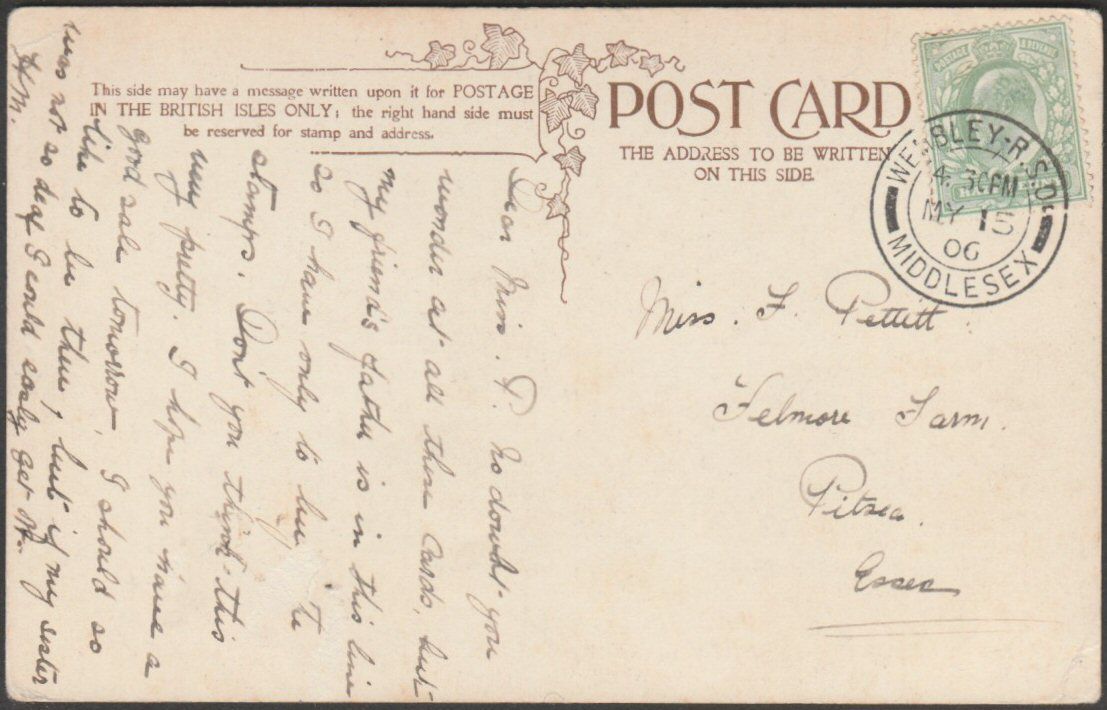 This side may have a message written upon it for POSTAGE
IN THE BRITISH ISLES ONLY; the right hand side must
be reserved for stamp and address.
POST CARD
THE ADDRESS TO BE WRITTEN
ON THIS SIDE.
POSTAGE & REVENUE
WEMBLEY·R.S.O.
4. 30PM
MY 15
06
MIDDLESEX
Miss. F. Pettitt
Felmore Farm.
Pitsea.
Essex
Dear Miss. P. No doubt you
wonder at all these cards, but
my friend's father is in this line
so I have only to buy the
stamps. Dont you think this
very pretty. I hope you have a
good sale tomorrow, I should so
like to be there, but if my sister
was not so deaf I could easly get off.